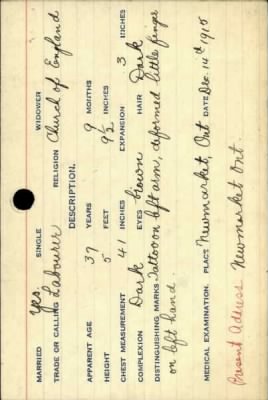 MARRIED Yes. SINGLE WIDOWER
TRADE OR CALLING Labourer RELIGION Church of England
DESCRIPTION.
APPARENT AGE 37 YEARS 9 MONTHS
HEIGHT 5 FEET 9½ INCHES
CHEST MEASUREMENT 41 INCHES EXPANSION 3 INCHES
COMPLEXION Dark EYES Brown HAIR Dark
DISTINGUISHING MARKS Tattoo on left arm, deformed little finger
on left hand.
MEDICAL EXAMINATION. PLACE Newmarket, Ont DATE Dec. 14th 1915
Present Address Newmarket Ont.